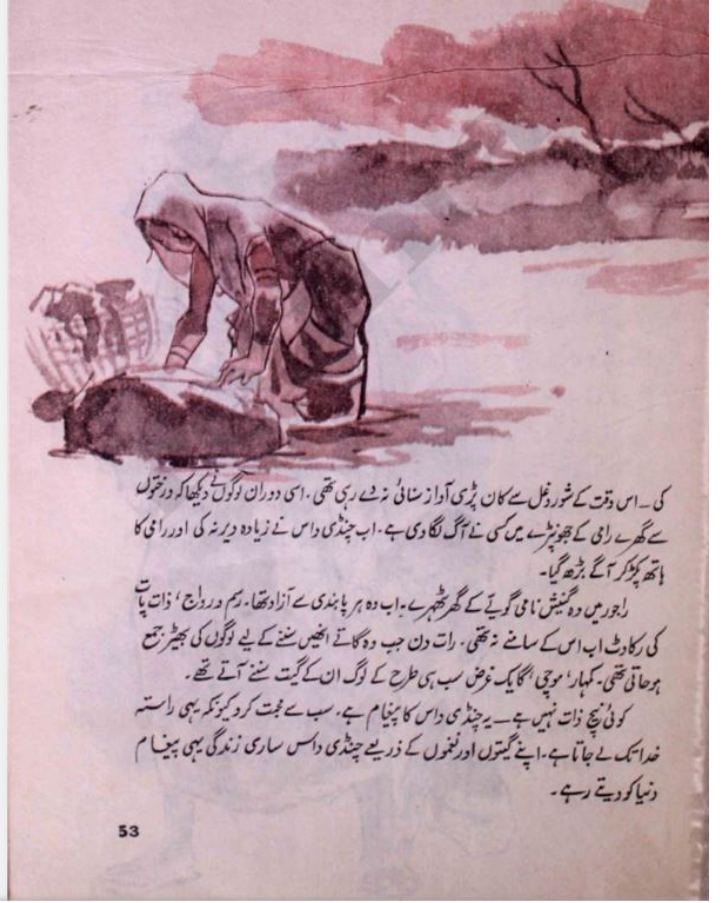 کی ـ اس وقت کے شور و غل سے کان پڑی آواز سنائی نہ دے رہی تھی ۔ اسی دوران لوگوں نے دیکھا کہ درختوں
سے گھرے رامی کے جھونپڑے میں کسی نے آگ لگا دی ہے ۔ اب چنڈی داس نے زیادہ دیر نہ کی اور رامی کا
ہاتھ پکڑ کر آگے بڑھ گیا ۔
راجور میں وہ گنیش نامی گویّے کے گھر ٹھہرے ۔ اب وہ ہر پابندی سے آزاد تھا ۔ رسم و رواج ، ذات پات
کی رکاوٹ اب اس کے سامنے نہ تھی ۔ رات دن جب وہ گاتے انھیں سننے کے لیے لوگوں کی بھیڑ جمع
ہو جاتی تھی ۔ کمہار ، موچی ، گایک غرض سب ہی طرح کے لوگ ان کے گیت سننے آتے تھے ۔
کوئی نیچ ذات نہیں ہے ـ یہ چنڈی داس کا پیغام ہے ۔ سب سے محبت کرو کیونکہ یہی راستہ
خدا تک لے جاتا ہے ۔ اپنے گیتوں اور نغموں کے ذریعے چنڈی داس ساری زندگی یہی پیغام
دنیا کو دیتے رہے ۔
53